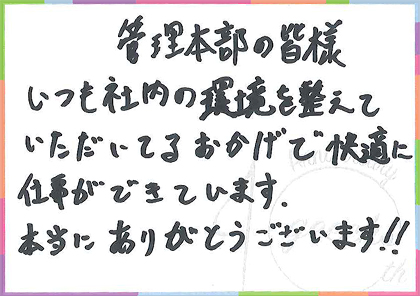 管理本部の皆様
いつも社内の環境を整えて
いただいてるおかげで快適に
仕事ができています.
本当にありがとうございます!!